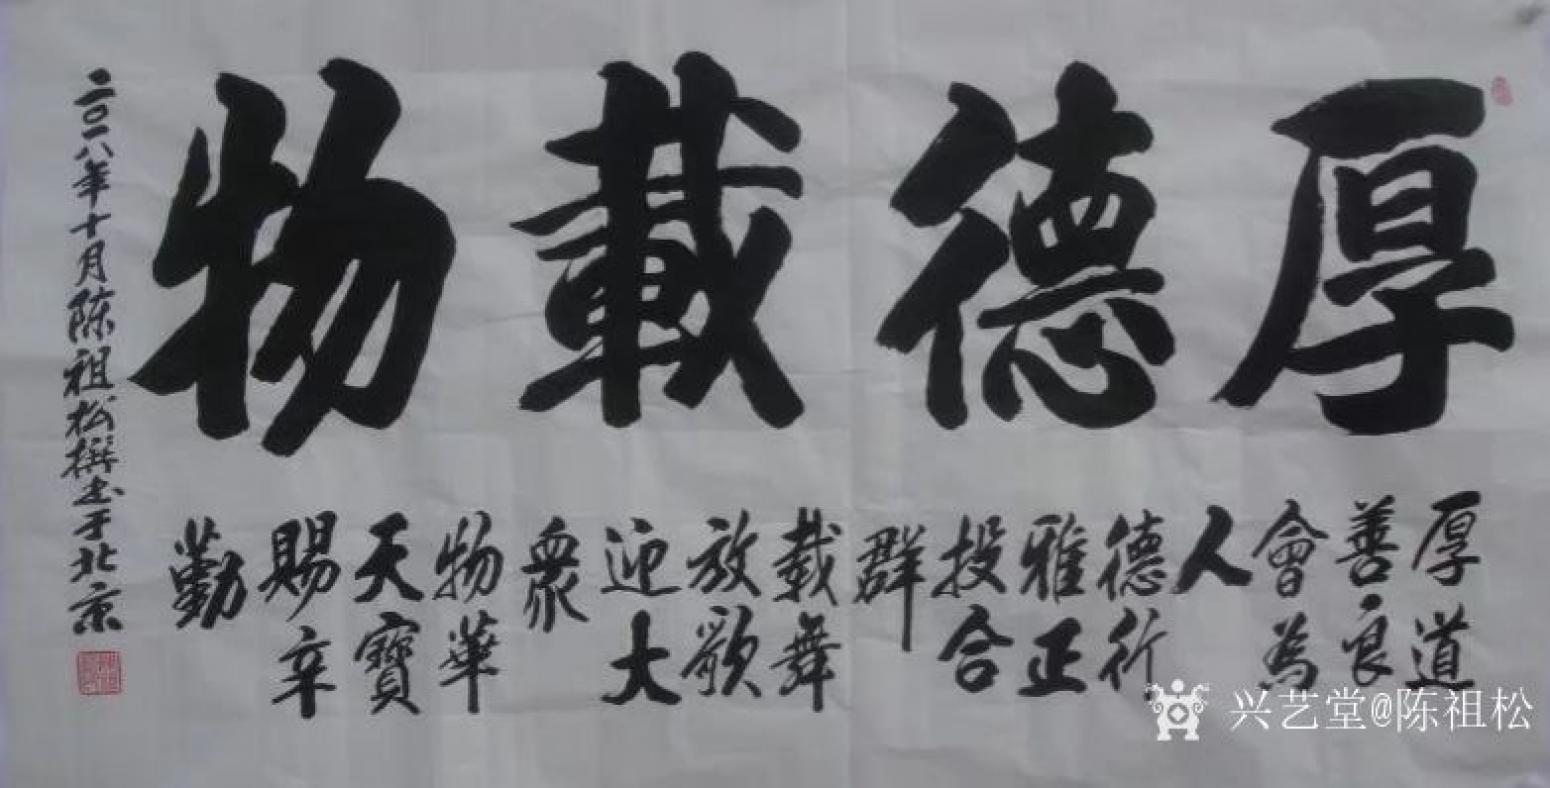 厚德載物
厚道
善良
會為
人
德行
雅正
投合
群
載舞
放歌
迎大
眾
物華
天寶
賜辛
勤
二〇一八年十月陈祖松撰书于北京
兴艺堂@陈祖松